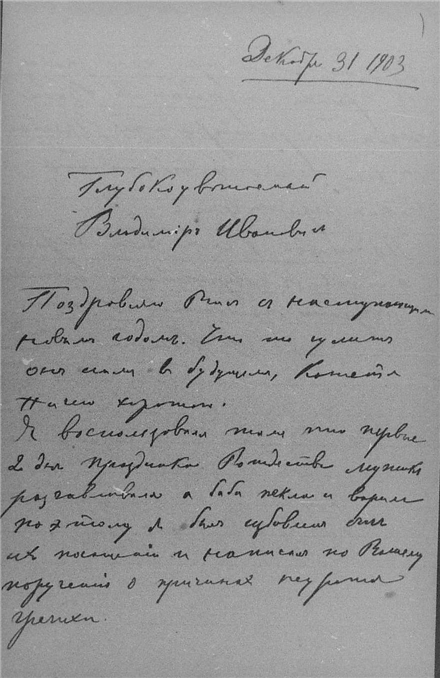 Декабр 31 1903
Глубокоуважаемый
Владимiръ Ивановичъ
Поздравляю Васъ съ наступающим
новымъ годомъ. Что то сулитъ
онъ намъ в будущемъ, кажется
ничего хорошаго.
Я воспользовался тѣмъ что первые
2 дня праздника Рождества мужики
разгавливали а бабы пекли и варили
поэтому я былъ избавленъ отъ
их посещенiй и написал по Вашему
порученiю о причинах неурожая
гречихи.